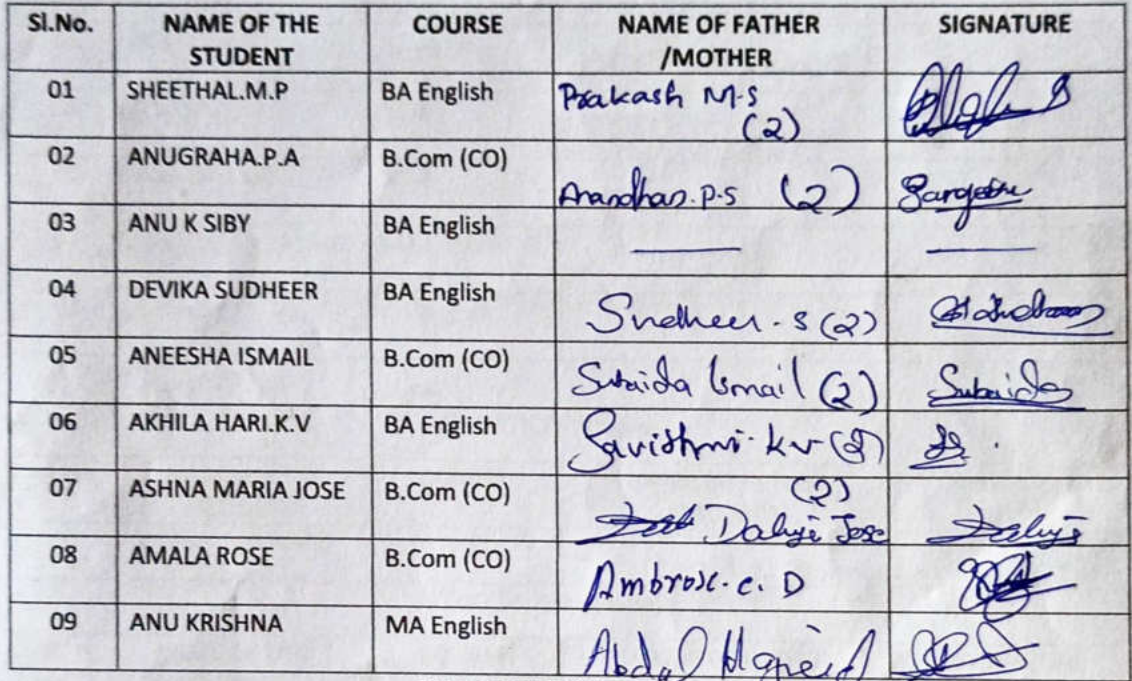 Sl.No. NAME OF THE STUDENT COURSE NAME OF FATHER /MOTHER SIGNATURE
01 SHEETHAL.M.P BA English Prakash M.S (2)
02 ANUGRAHA.P.A B.Com (CO) Anandhan.P.S (2)
03 ANU K SIBY BA English
04 DEVIKA SUDHEER BA English Sudheer.S (2)
05 ANEESHA ISMAIL B.Com (CO) Subaida Ismail (2) Subaida
06 AKHILA HARI.K.V BA English Savithri.K.V (2)
07 ASHNA MARIA JOSE B.Com (CO) (2) Daluji Jose Daluji
08 AMALA ROSE B.Com (CO) Ambrose.C.D
09 ANU KRISHNA MA English Abdul